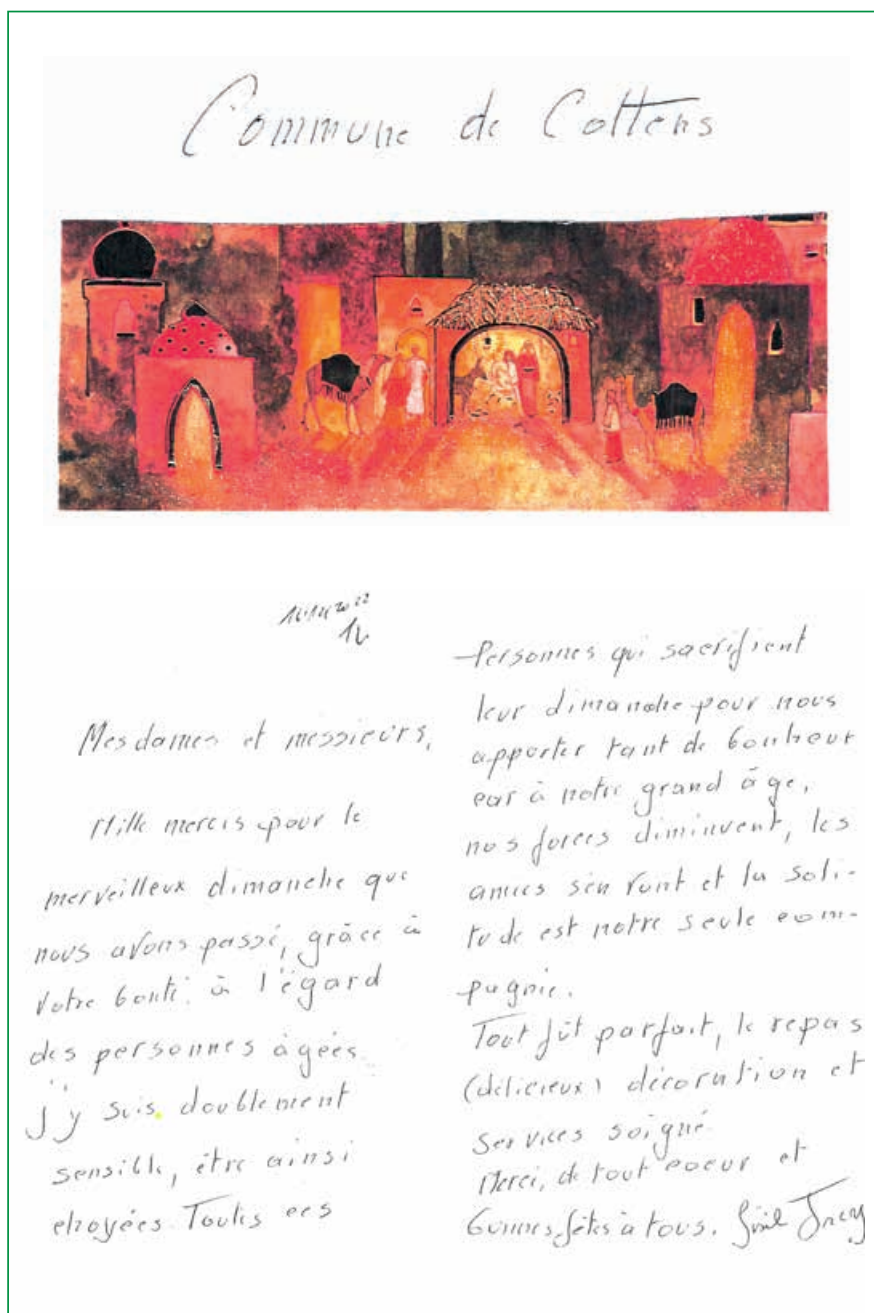 Commune de Cottens
Mesdames et messieurs,
Mille mercis pour le
merveilleux dimanche que
nous avons passé, grâce à
votre bonté à l'égard
des personnes âgées.
J'y suis doublement
sensible, être ainsi
choyées. Toutes ces
Personnes qui sacrifient
leur dimanche pour nous
apporter tant de bonheur
car à notre grand âge,
nos forces diminuent, les
amies s'en vont et la soli-
tude est notre seule com-
pagnie.
Tout fût parfait, le repas
(délicieux) décoration et
services soigné.
Merci, de tout coeur et
bonnes fêtes à tous.